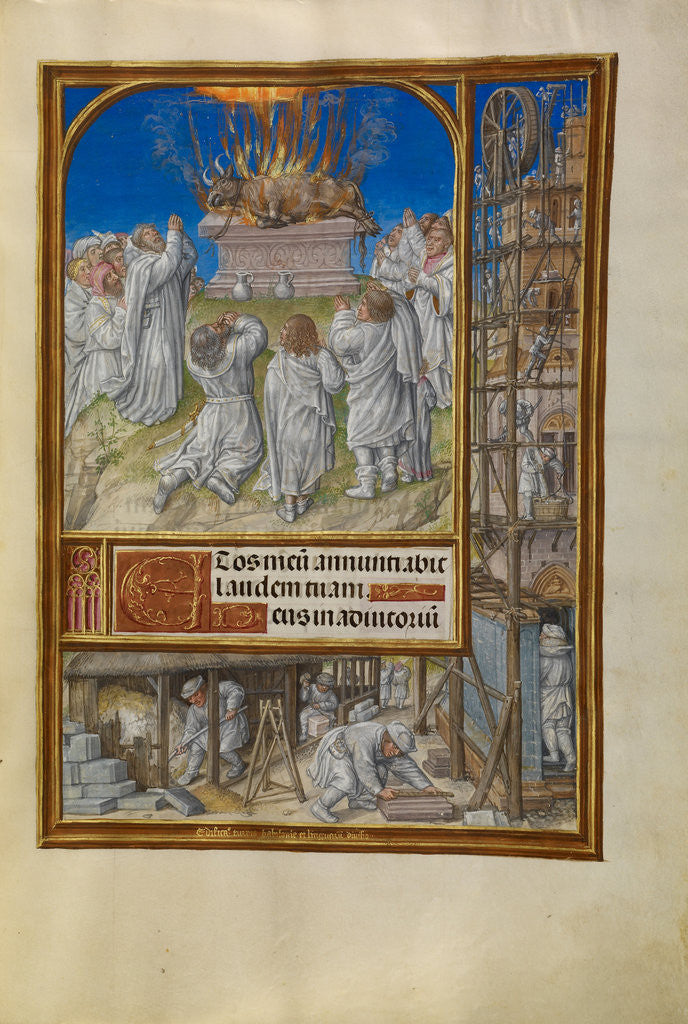 Et os meū annuntiabit
laudem tuam.
Deus in adiutoriū
Edificaᵒ. turris babilonie et linguarū diuisio.